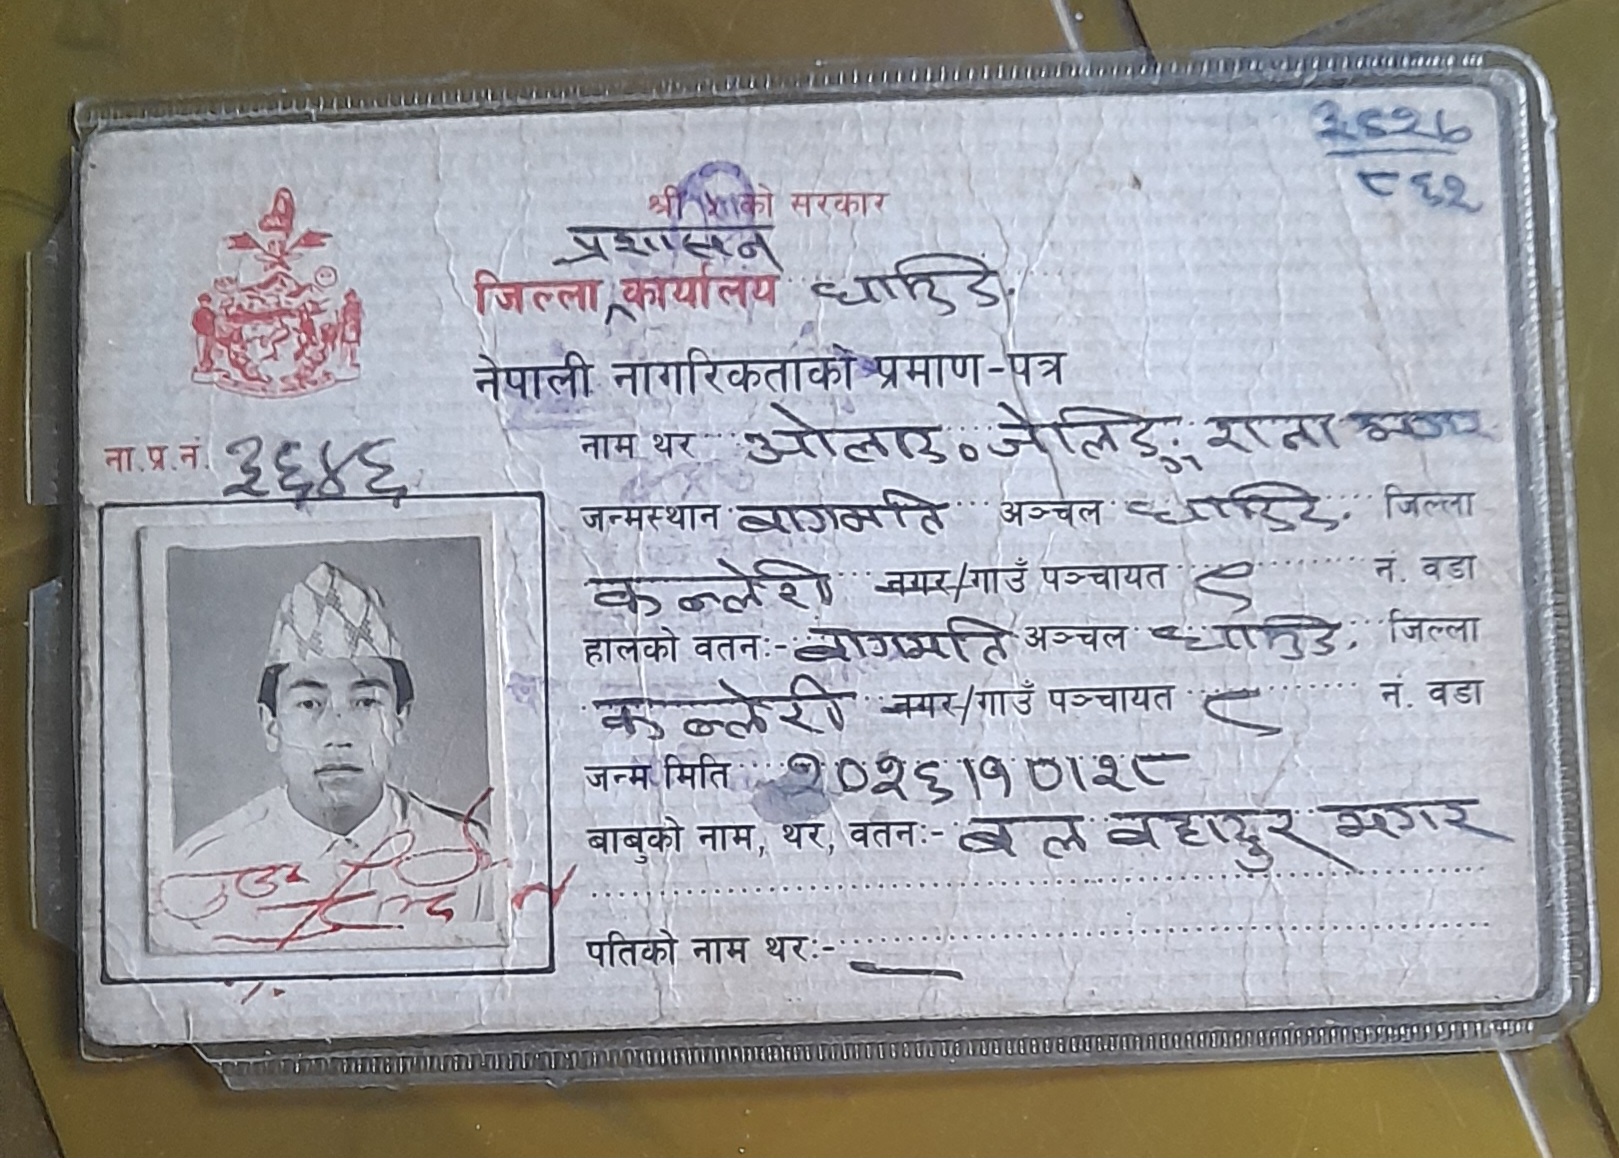 ३६२७
८६२
श्री ५ को सरकार
प्रशासन
जिल्ला कार्यालय धादिङ.
नेपाली नागरिकताको प्रमाण-पत्र
ना.प्र.नं. ३६४६
नाम थर राना मगर
जन्मस्थान बागमति अञ्चल धादिङ. जिल्ला
नगर/गाउँ पञ्चायत ९ नं. वडा
हालको वतनः- बागमति अञ्चल धादिङ. जिल्ला
नगर/गाउँ पञ्चायत ९ नं. वडा
जन्म मिति २०२६।१०।२८
बाबुको नाम, थर, वतनः- बल बहादुर मगर
पतिको नाम थरः-